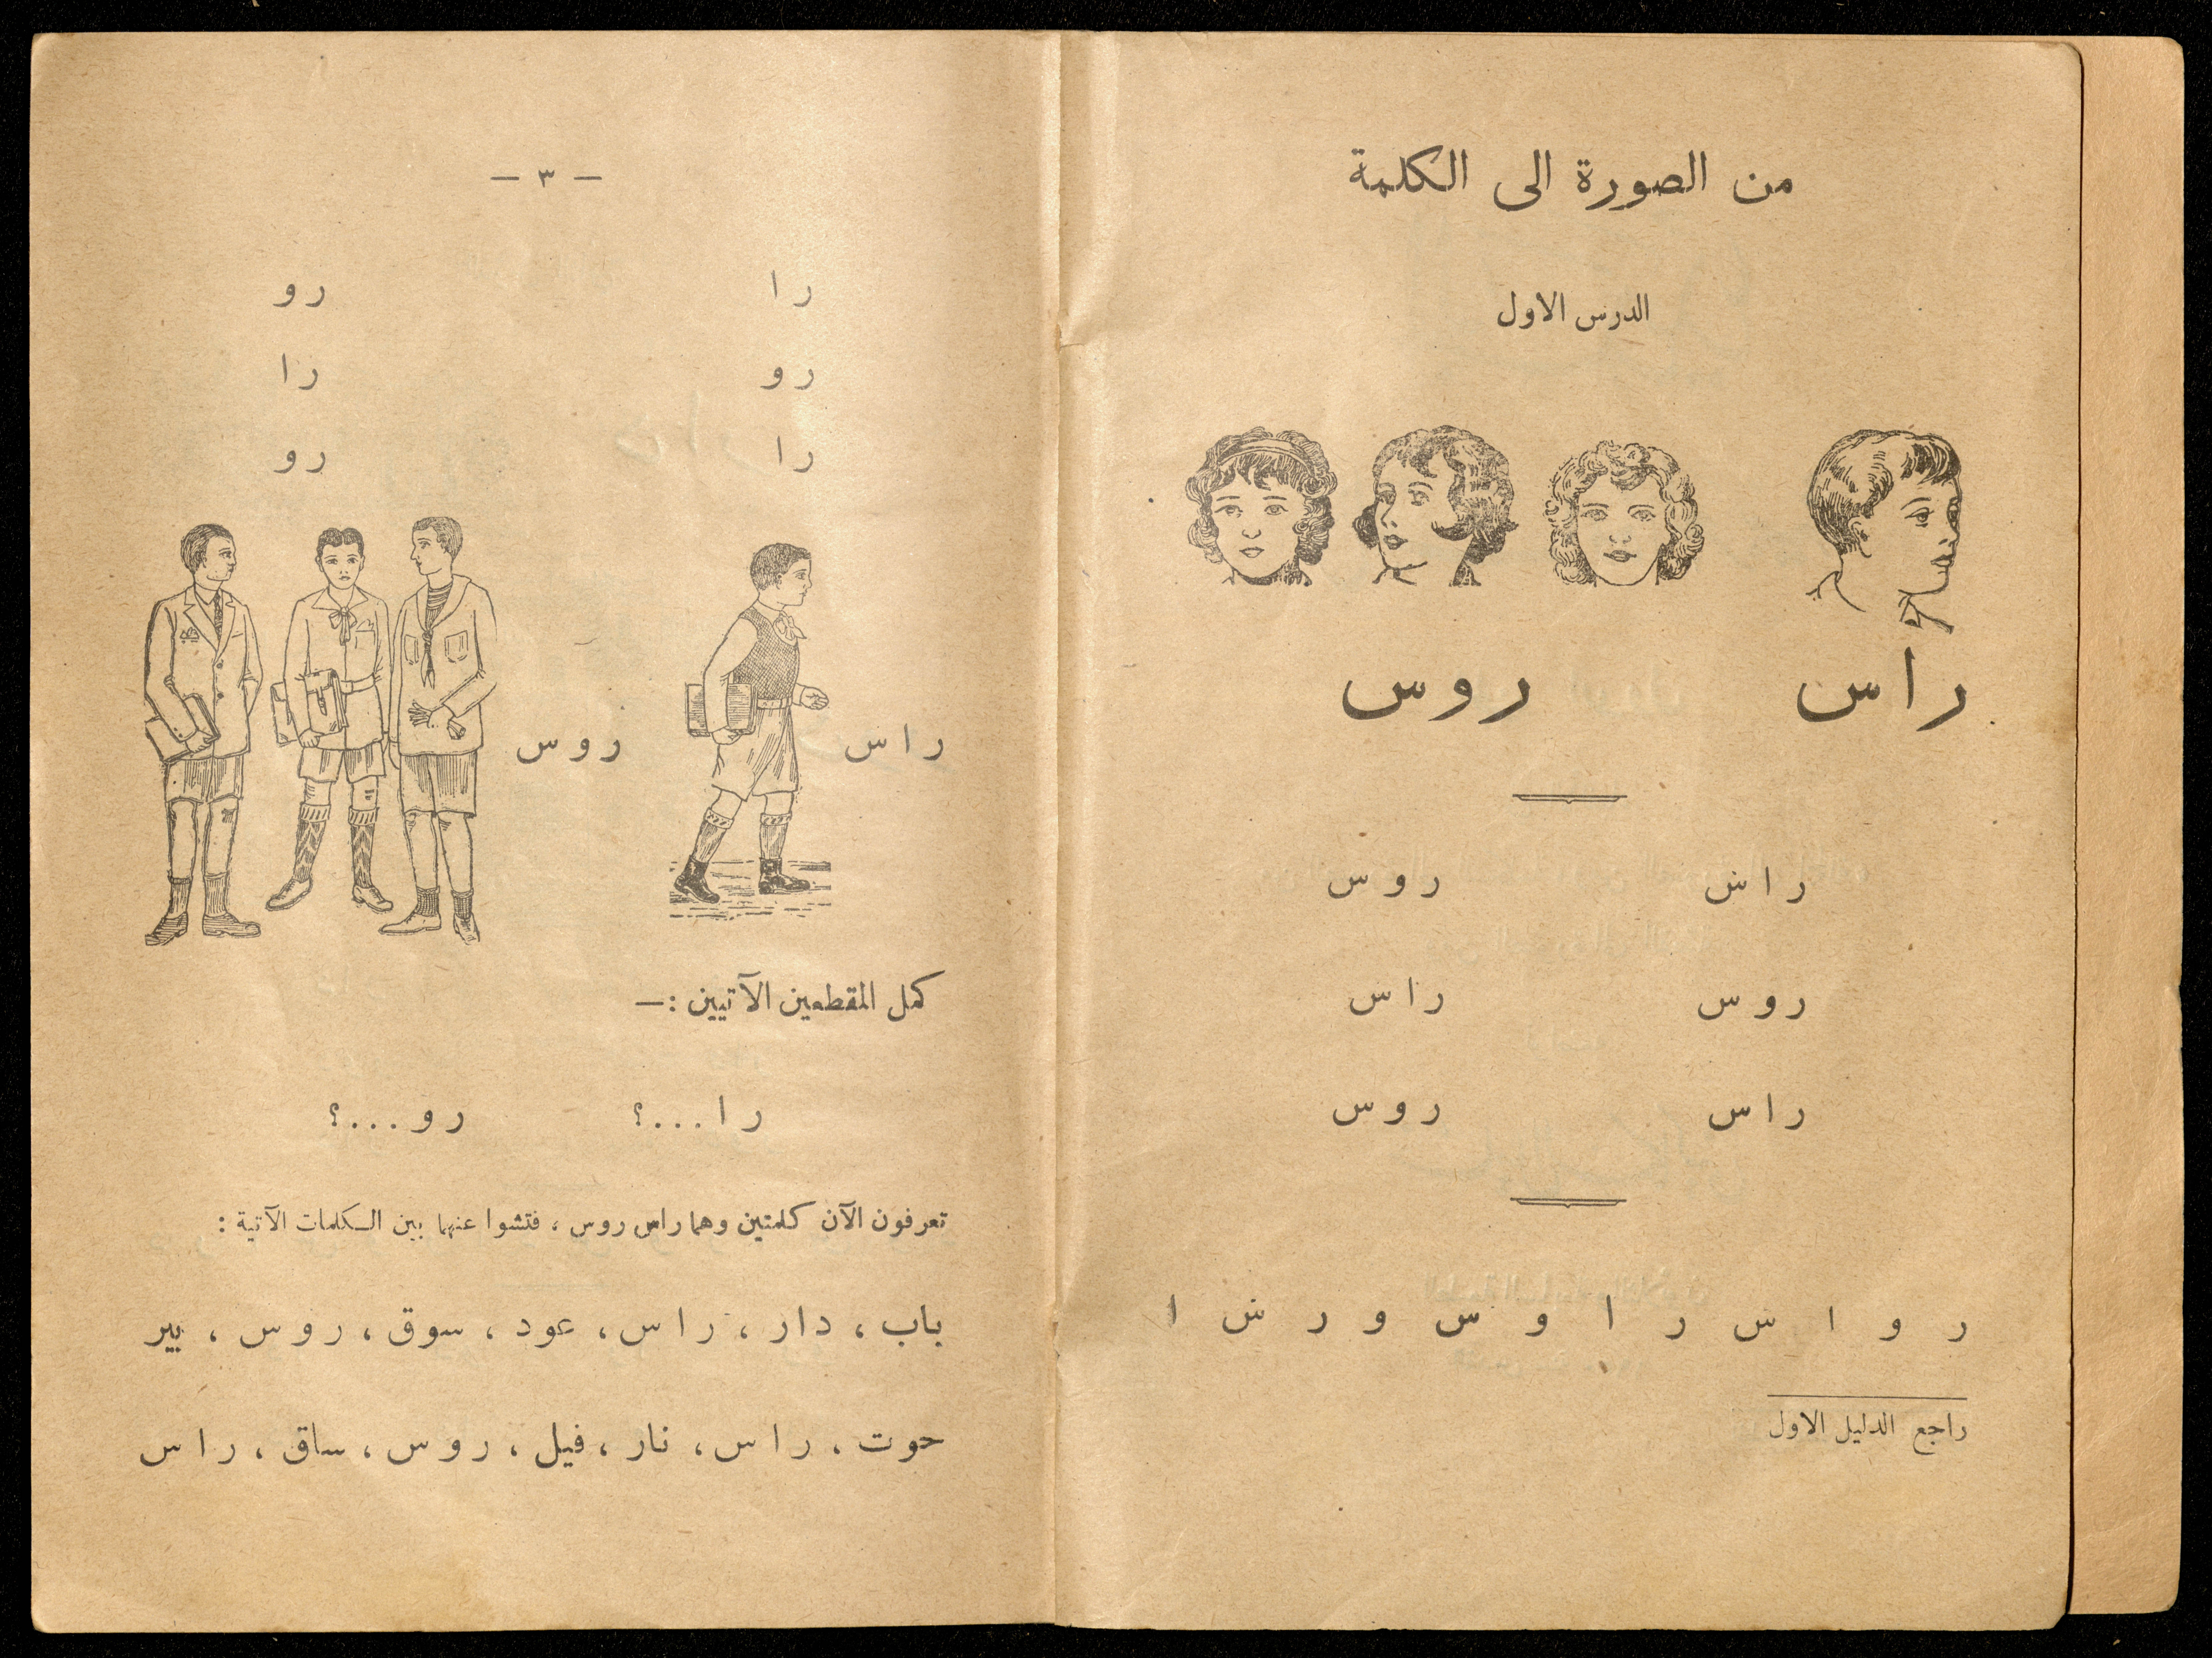 من الصورة الى الكلمة
الدرس الاول
راس روس
راس روس
روس راس
راس روس
ر و ا س ر ا و س و ر س ا
راجع الدليل الاول
— ٣ —
را رو
رو را
را رو
راس روس
كمل المقطعين الآتيين :—
را...؟ رو...؟
تعرفون الآن كلمتين وهما راس روس ، فتشوا عنهما بين الكلمات الآتية :
باب ، دار ، راس ، عود ، سوق ، روس ، بير
حوت ، راس ، نار ، فيل ، روس ، ساق ، راس